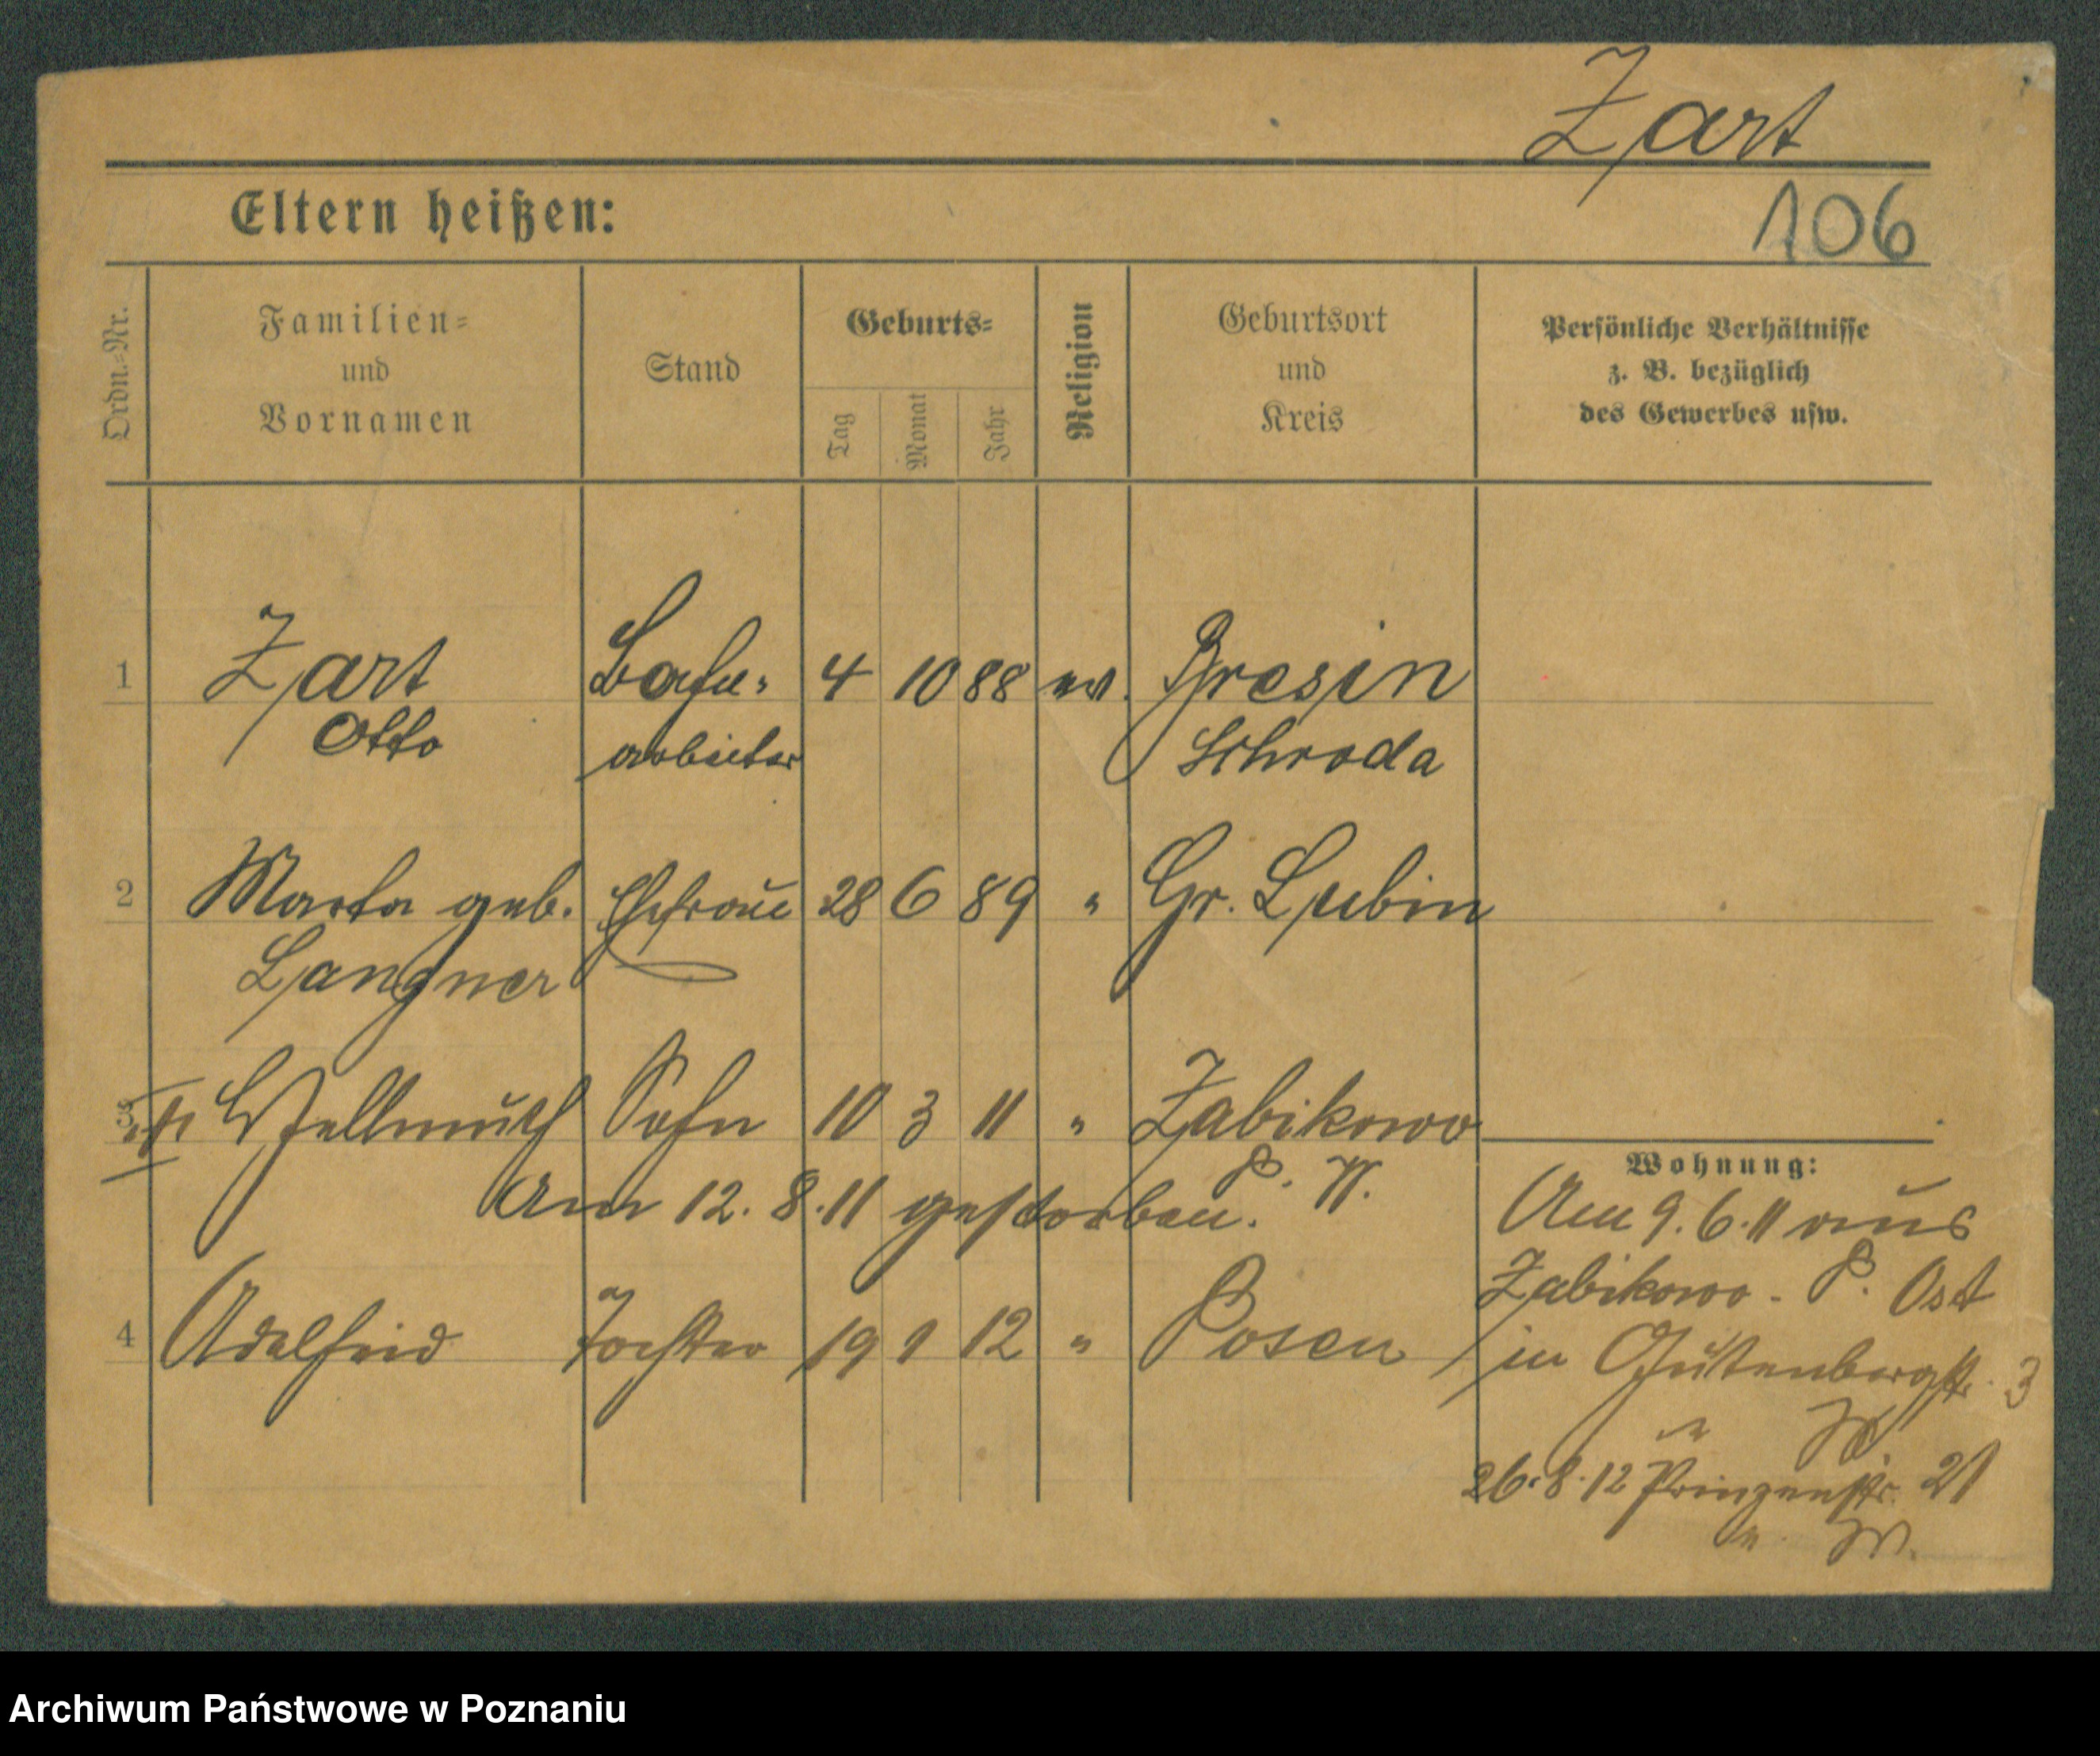 Zart
Eltern heißen:
106
Ordn.-Nr.
Familien-
und
Vornamen
Stand
Geburts-
Tag
Monat
Jahr
Religion
Geburtsort
und
Kreis
Persönliche Verhältnisse
z. B. bezüglich
des Gewerbes usw.
1 Zart 4 10 88 ev. Bresin
Otto arbeiter Schroda
2 Marta geb. Ehefrau 28 6 89 " Gr. Lubin
Langner
3 Hellmuth Sohn 10 3 11 " Zabikowo
P. W.
Am 12. 8. 11 gestorben.
4 Adelheid Tochter 19 1 12 " Posen
Wohnung:
Am 9. 6. 11 aus
Zabikowo - P. Ost
in Gutenbergstr. 3
26. 8. 12 Prinzenstr. 21
Archiwum Państwowe w Poznaniu